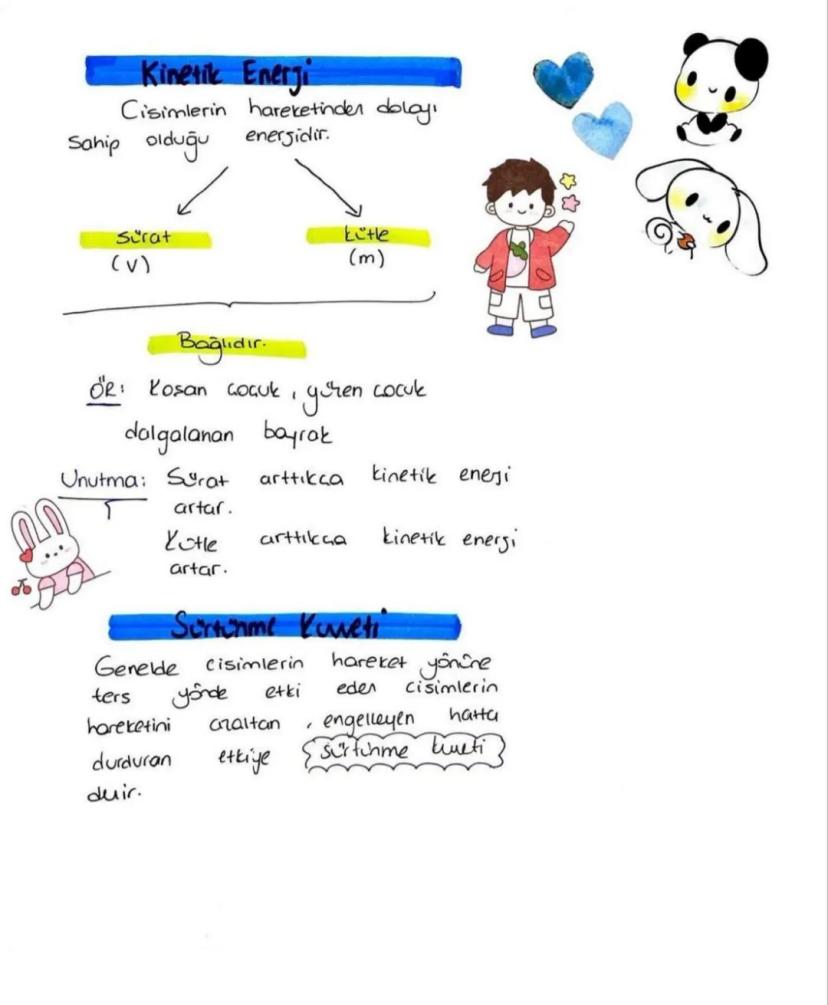 Kinetik Enerji
Cisimlerin hareketinden dolayı
sahip olduğu enerjidir.
sürat kütle
(v) (m)
Bağlıdır.
ÖR: Koşan çocuk, yüren çocuk
dalgalanan bayrak
Unutma: Sürat arttıkça kinetik enerji
artar.
Kütle arttıkça kinetik enerji
artar.
Sürtünme Kuvveti
Genelde cisimlerin hareket yönüne
ters yönde etki eden cisimlerin
hareketini azaltan, engelleyen hatta
durduran etkiye sürtünme kuvveti
denir.